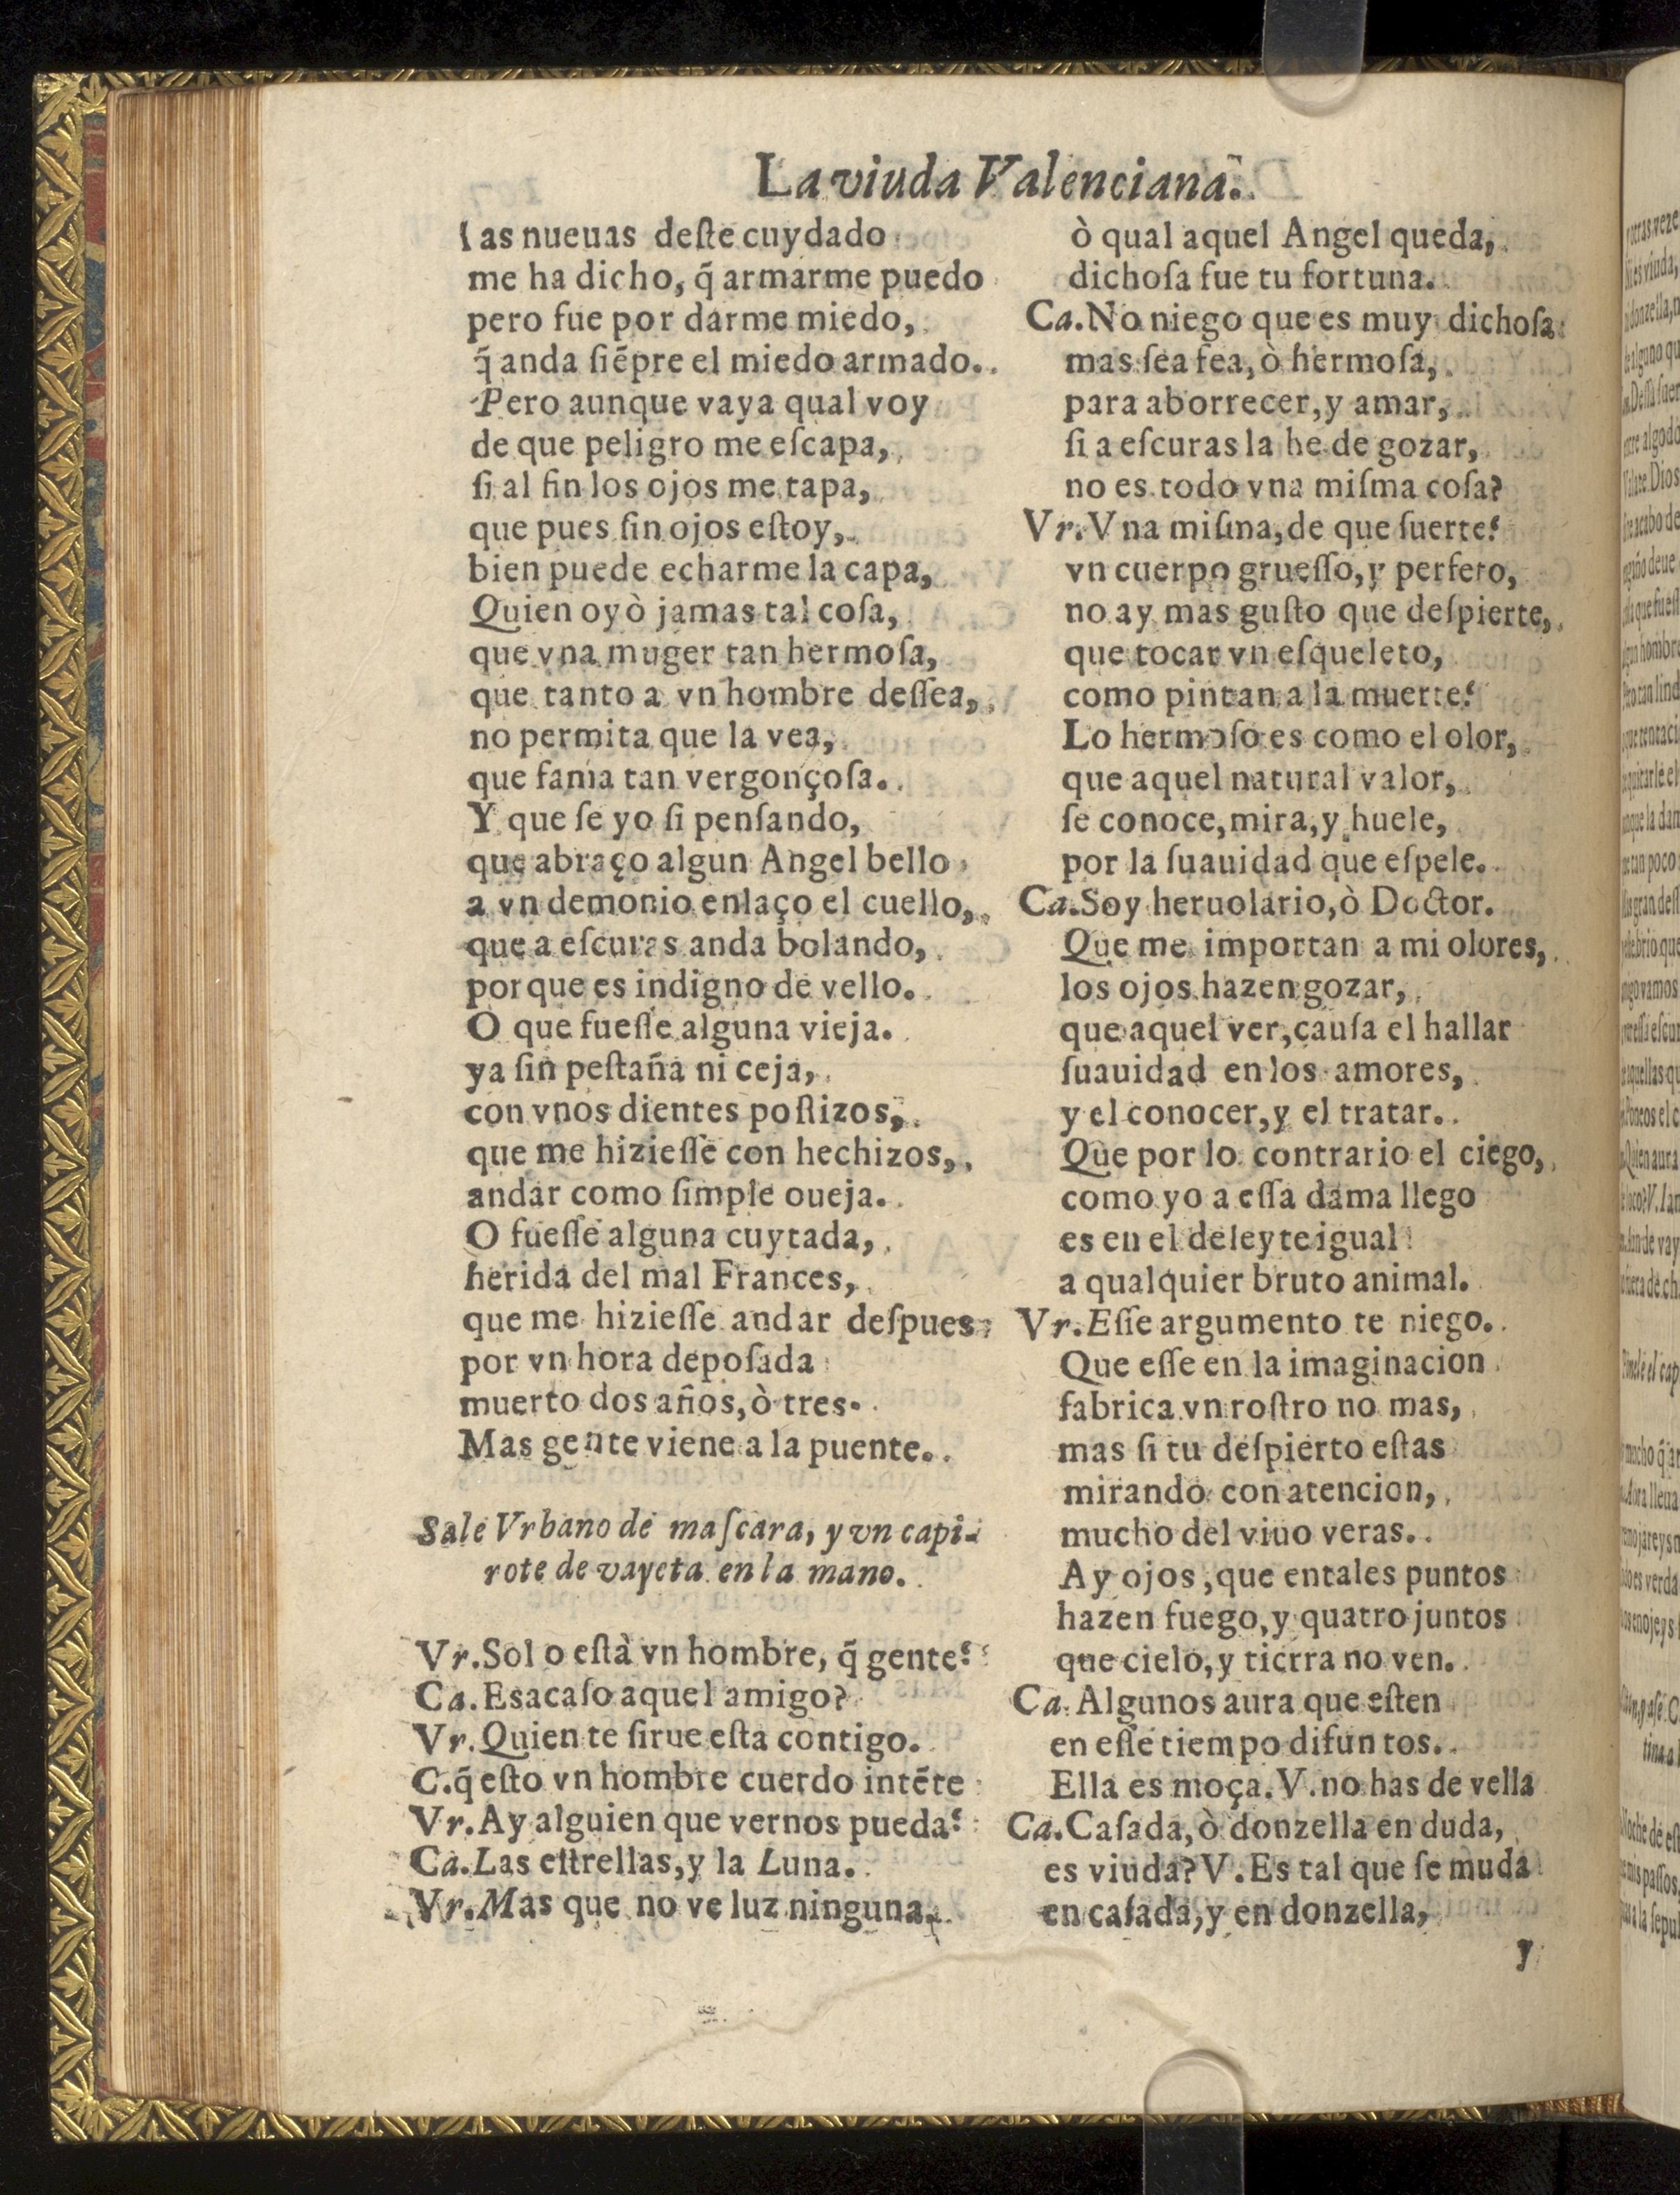 La viuda Valenciana.
las nueuas deste cuydado
me ha dicho, q̃ armarme puedo
pero fue por darme miedo,
q̃ anda siẽpre el miedo armado.
Pero aunque vaya qual voy
de que peligro me escapa,
si al fin los ojos me tapa,
que pues sin ojos estoy,
bien puede echarme la capa,
Quien oyò jamas tal cosa,
que vna muger tan hermosa,
que tanto a vn hombre dessea,
no permita que la vea,
que fama tan vergonçosa.
Y que se yo si pensando,
que abraço algun Angel bello
a vn demonio enlaço el cuello,
que a escuras anda bolando,
porque es indigno de vello.
O que fuesse alguna vieja.
ya sin pestaña ni ceja,
con vnos dientes postizos,
que me hiziesse con hechizos,
andar como simple oueja.
O fuesse alguna cuytada,
herida del mal Frances,
que me hiziesse andar despues
por vn hora deposada
muerto dos años, ò tres.
Mas gente viene a la puente.
Sale Vrbano de mascara, y vn capi-
rote de vayeta en la mano.
Vr. Solo està vn hombre, q̃ gente?
Ca. Es acaso aquel amigo?
Vr. Quien te sirue esta contigo.
C. q̃ esto vn hombre cuerdo intẽte
Vr. Ay alguien que vernos pueda?
Ca. Las estrellas, y la Luna.
Vr. Mas que no ve luz ninguna,
ò qual aquel Angel queda,
dichosa fue tu fortuna.
Ca. No niego que es muy dichosa
mas sea fea, ò hermosa,
para aborrecer, y amar,
si a escuras la he de gozar,
no es todo vna misma cosa?
Vr. Vna misma, de que suerte?
vn cuerpo gruesso, y perfeto,
no ay mas gusto que despierte,
que tocar vn esqueleto,
como pintan a la muerte?
Lo hermoso es como el olor,
que aquel natural valor,
se conoce, mira, y huele,
por la suauidad que espele.
Ca. Soy heruolario, ò Doctor.
Que me importan a mi olores,
los ojos hazen gozar,
que aquel ver, causa el hallar
suauidad en los amores,
y el conocer, y el tratar.
Que por lo contrario el ciego,
como yo a essa dama llego
es en el deleyte igual
a qualquier bruto animal.
Vr. Esse argumento te niego.
Que esse en la imaginacion
fabrica vn rostro no mas,
mas si tu despierto estas
mirando con atencion,
mucho del viuo veras.
Ay ojos, que en tales puntos
hazen fuego, y quatro juntos
que cielo, y tierra no ven.
Ca. Algunos aura que esten
en esse tiempo difuntos.
Ella es moça. V. no has de vella
Ca. Casada, ò donzella en duda,
es viuda? V. Es tal que se muda
en casada, y en donzella,
y